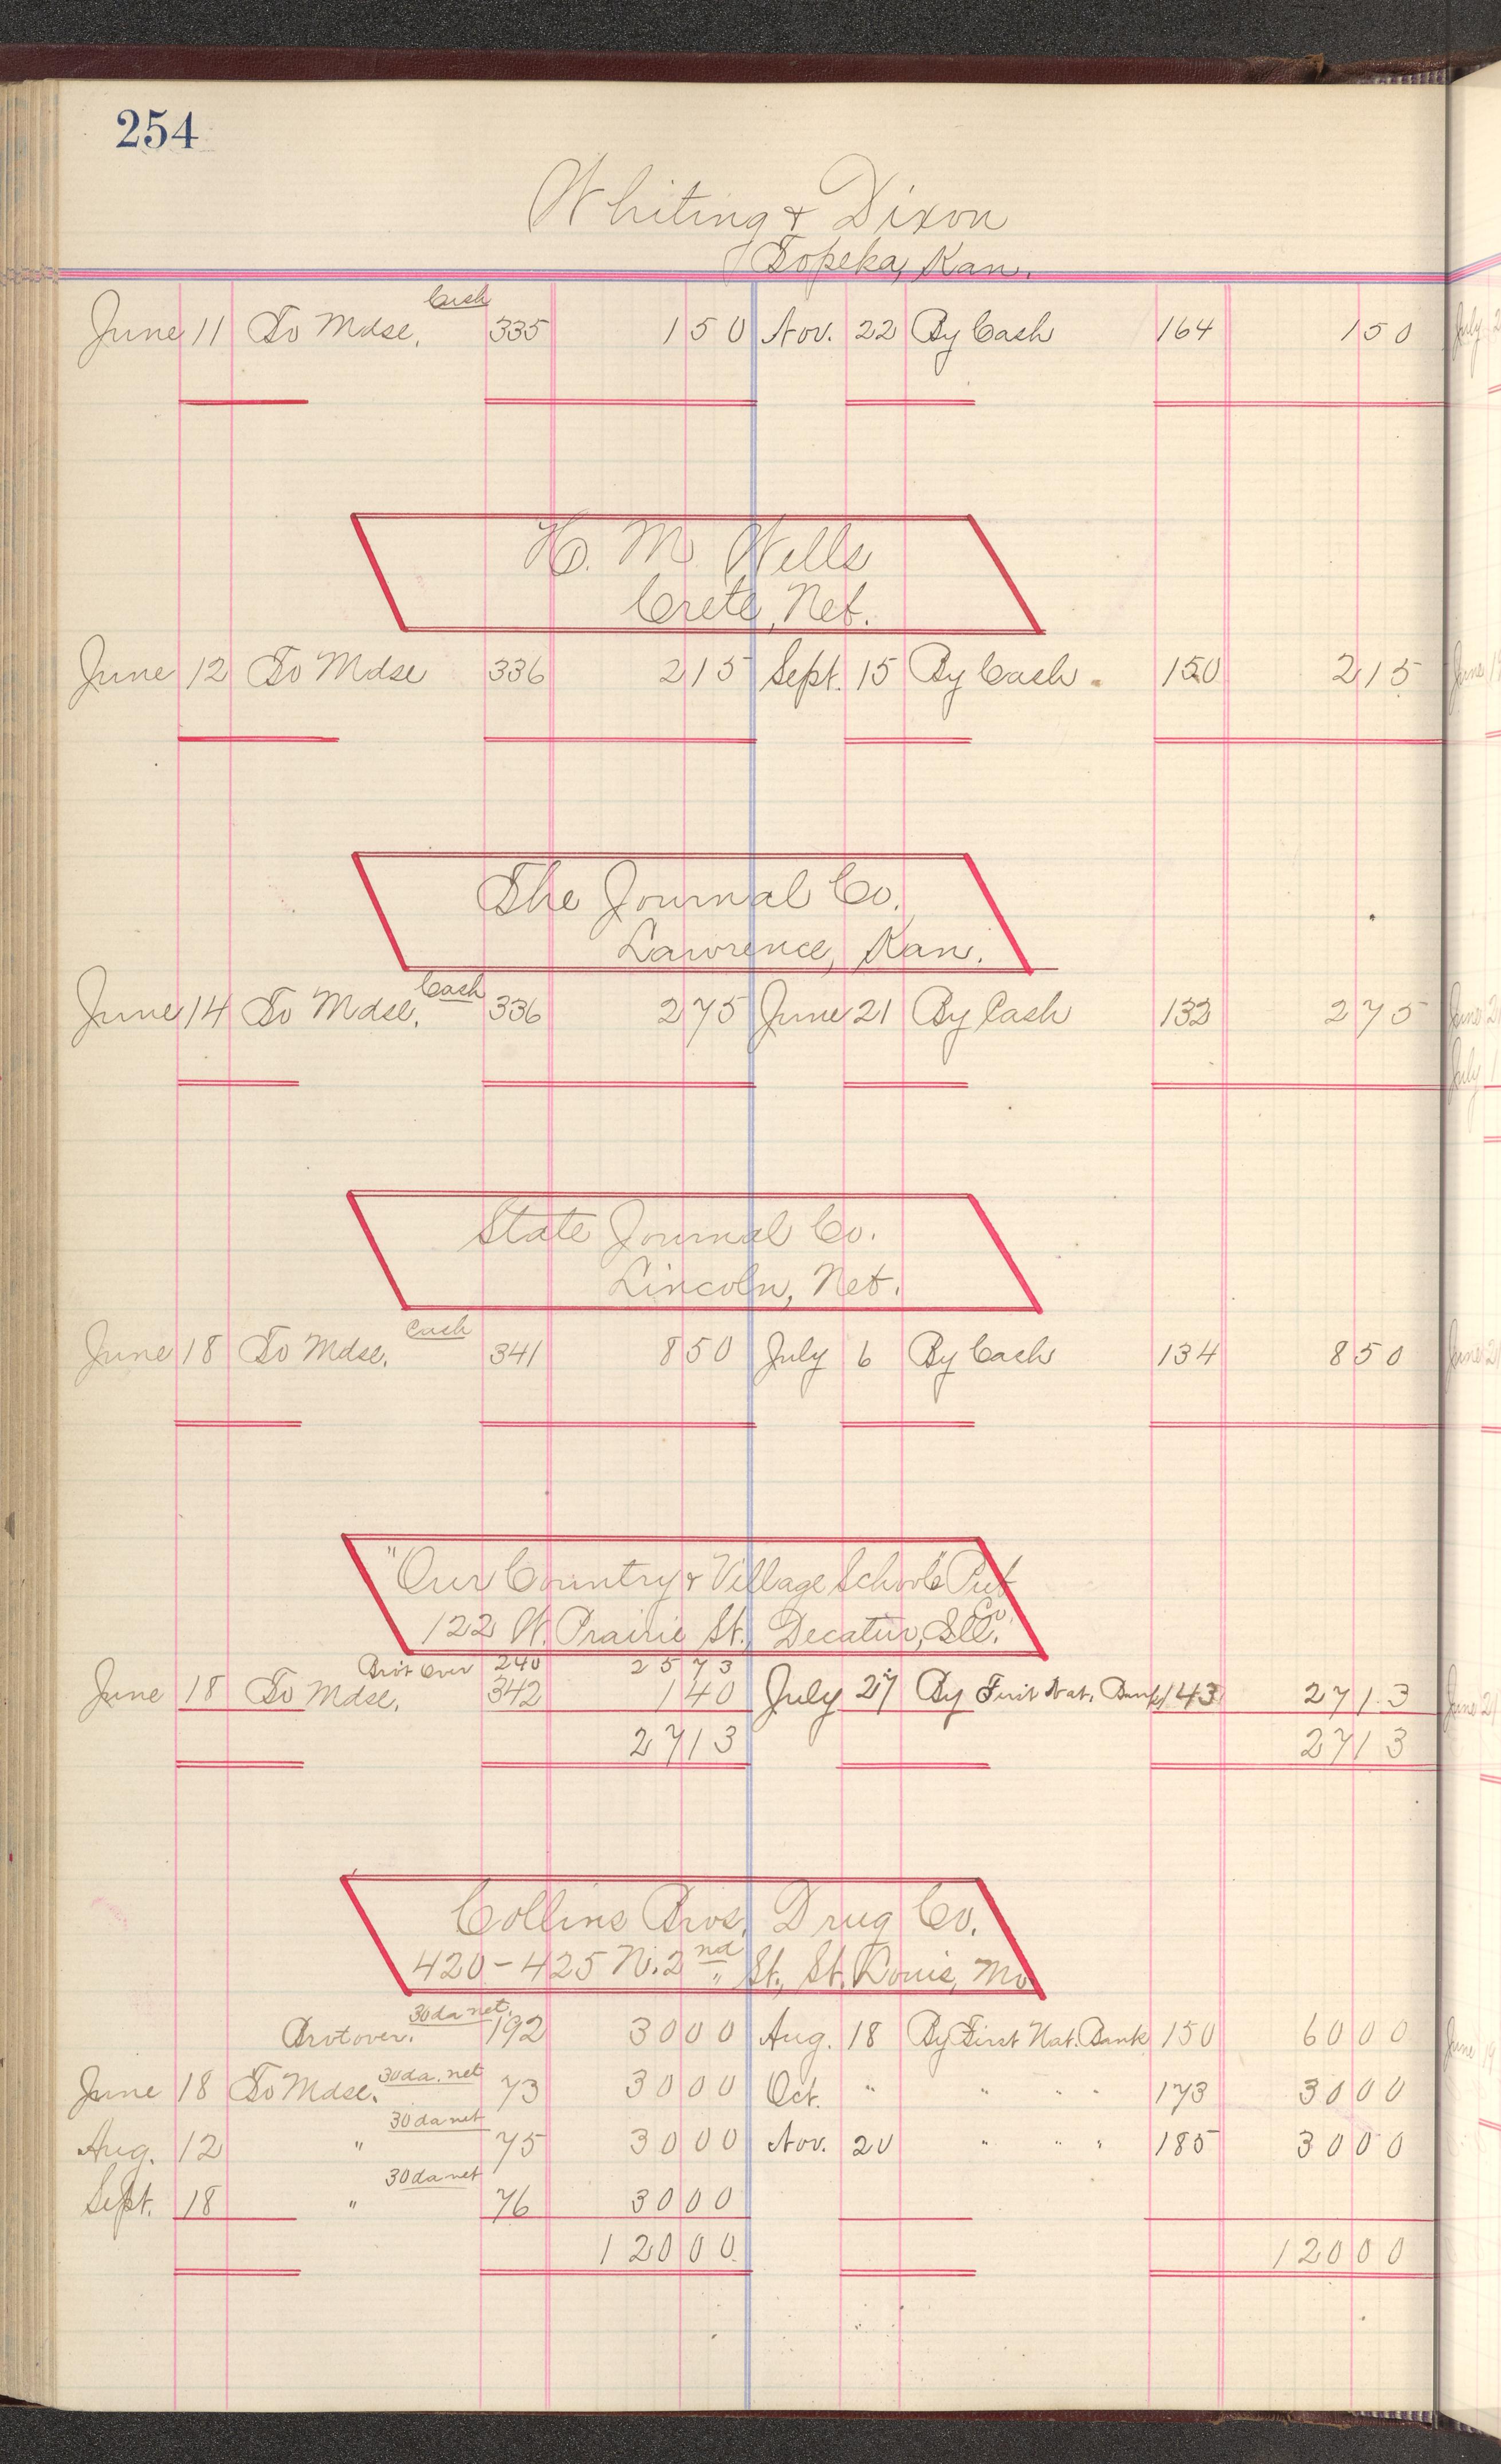 254
Whiting & Dixon
Topeka, Kan.
Cash
June 11 To Mdse. 335 150 Nov. 22 By Cash 164 150
H. M. Wells
Crete, Neb.
June 12 To Mdse 336 215 Sept. 15 By Cash 150 215
The Journal Co.
Lawrence, Kan.
Cash
June 14 To Mdse. 336 275 June 21 By Cash 132 275
State Journal Co.
Lincoln, Neb.
Cash
June 18 To Mdse. 341 850 July 6 By Cash 134 850
"Our Country & Village Schools" Pub
Co.
122 W. Prairie St., Decatur, Ill.
Brot Over 240 2573
June 18 To Mdse. 342 140 July 27 By First Nat. Bank 143 2713
2713 2713
Collins Bros. Drug Co.
420-425 N. 2nd St., St. Louis, Mo
30 da net.
Brot over. 192 3000 Aug. 18 By First Nat. Bank 150 6000
30 da. net
June 18 To Mdse. 73 3000 Oct. " " " " 173 3000
30 da net
Aug. 12 " 75 3000 Nov. 20 " " " 185 3000
30 da net
Sept. 18 " 76 3000
12000 12000